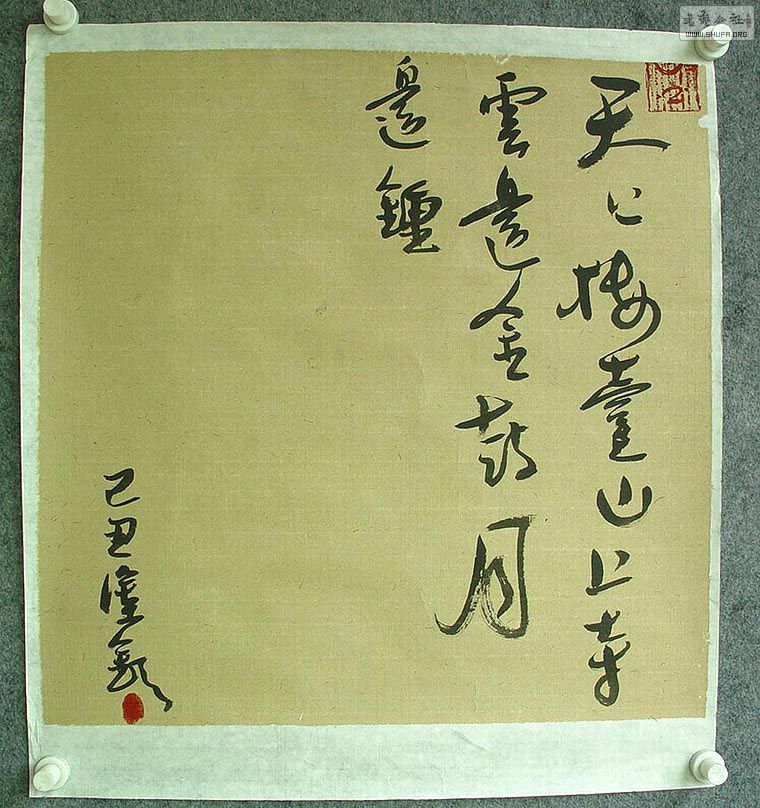 天上樓臺山上寺
雲邊金鼓月
邊鐘
己丑
WWW.SHUFA.ORG